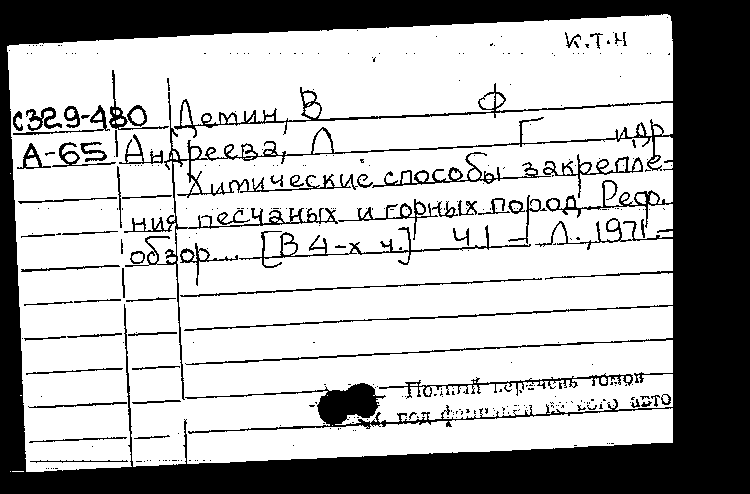 К.Т.Н
С329-480 Демин, В Ф
А-65 Андреева, Л Г и др.
Химические способы закрепле-
ния песчаных и горных пород. Реф.
обзор... [В 4-х ч.] Ч.1 - Л., 1971 -
Полный перечень томов
под фамилией первого авто